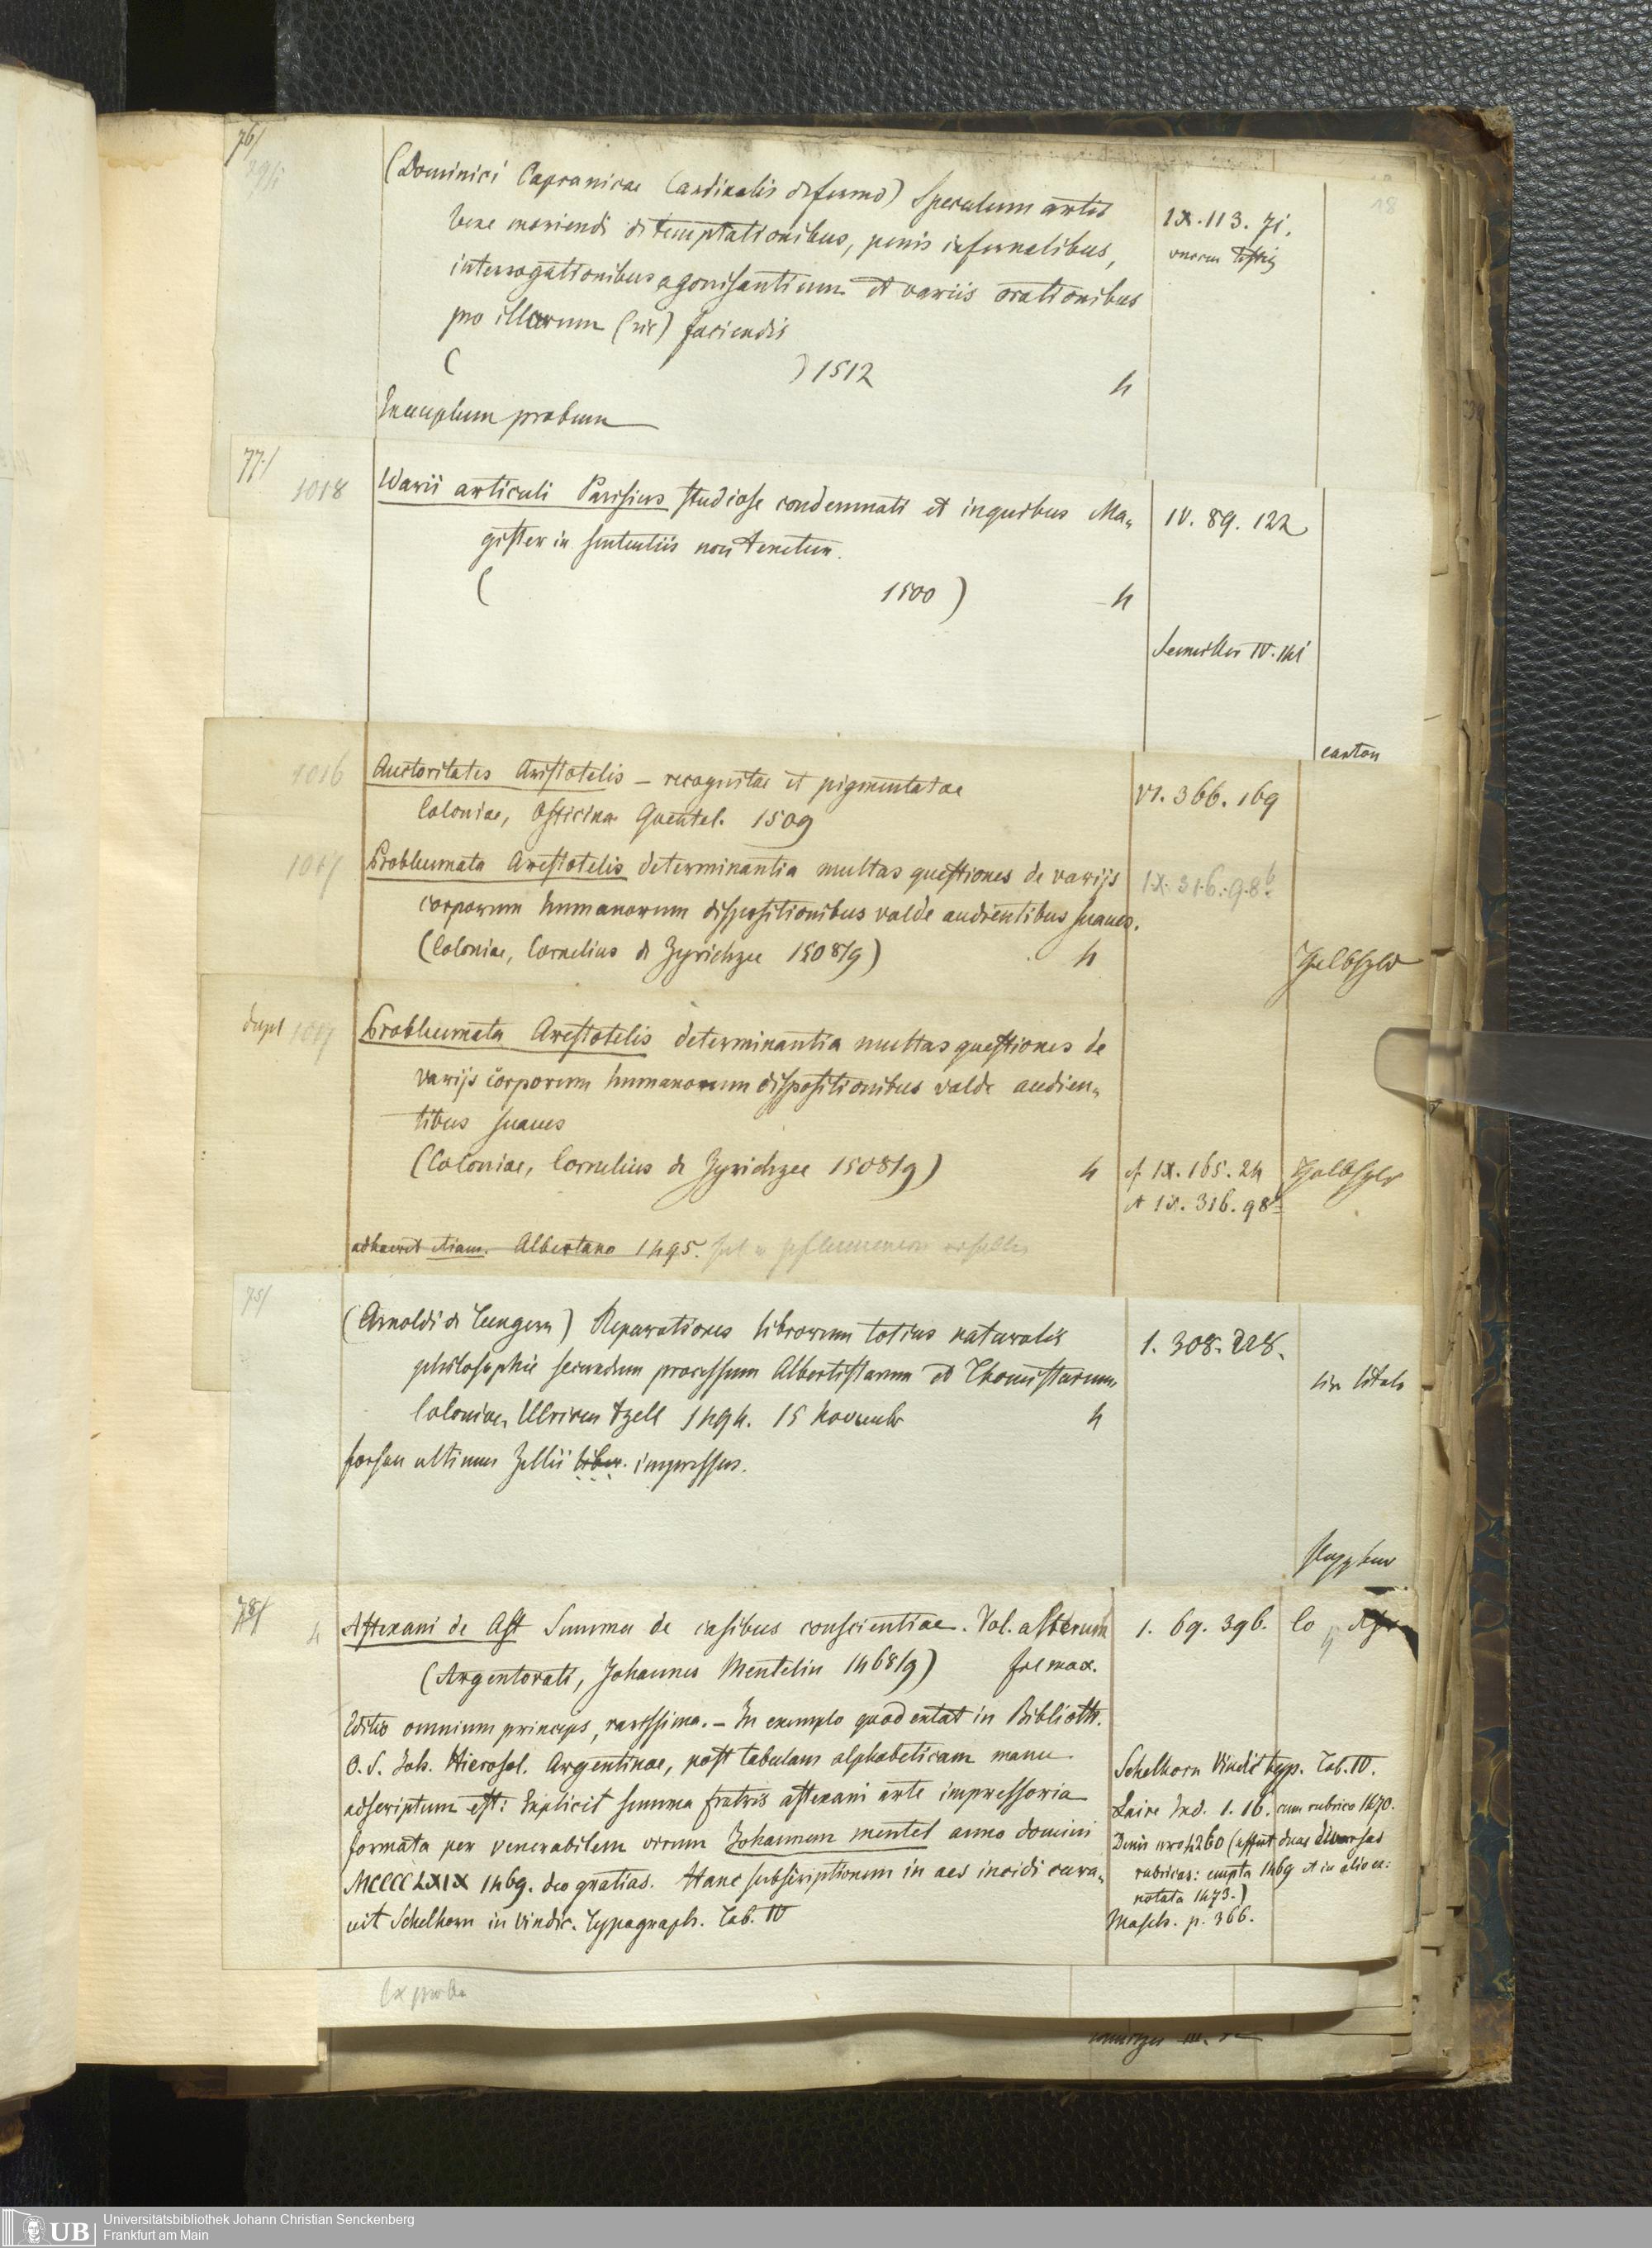 76/
(Dominici Capranicae Cardinalis de fermo) Speculum artis
bene moriendi de temptationibus, penis infernalibus,
interrogationibus agonisantium et variis orationibus
pro illorum (sic) faciendis
( ) 1512 4
Exemplum probum
IX. 113. 71.
18
77/
1018
Warii articuli Parisius studiose condemnati et inquibus Ma„
gister in sententiis non tenetur.
( 1500 ) 4
IV. 89. 122
Seemiller IV. 141
carton
1016
Auctoritates Aristotelis – recognitae et pigmentatae
Coloniae, Officina Quentel. 1509
VI. 366. 169
1017
Probleumata Arestotelis determinantia multas questiones de varijs
corporum humanorum dispositionibus valde audientibus suaues.
(Coloniae, Cornelius de Zyrichzee 1508/9) 4
IX. 316. 98b
Halbfzbd
dupl 1017
Probleumata Arestotelis determinantia multas questiones de
varijs corporum humanorum dispositionibus valde audien„
tibus suaues
(Coloniae, Cornelius de Zyrichzee 1508/9) 4
cf. IX. 165. 24
et IX. 316. 98b
adhaeret etiam. Albertano 1495.
75/
(Arnoldi de Tungern) Reparationes librorum totius naturalis
philosophie secundum processum Albertistarum et Thomistarum.
Coloniae, Ulricus tzell 1494. 15 Novembr 4
forsan ultimus Zellii liber impressus.
1. 308. 228.
sin titulo
78/
4
Astexani de Ast Summa de casibus conscientiae. Vol. alterum
(Argentorati, Johannes Mentelin 1468/9) fol max.
Editio omnium princeps, rarissima. – In exemplo quod extat in Biblioth.
O. S. Joh. Hierosol. Argentinae, post tabulam alphabeticam manu
adscriptum est: Explicit summa fratris astexani arte impressoria
formata per venerabilem virum Johannem mentel anno domini
MCCCCLXIX 1469. deo gratias. Hanc subscriptionem in aes incidi cura„
vit Schelhorn in Vindic. Typograph. Tab. IV
1. 69. 396.
Schelhorn Vindic typ. Tab. IV.
Laire Ind. 1. 16. cum rubrica 1470.
Denis nro 4260 (affert duas diversas
rubricas: empta 1469 et in alio ex:
notata 1473.)
Masch. p. 366.
Universitätsbibliothek Johann Christian Senckenberg
Frankfurt am Main
UB